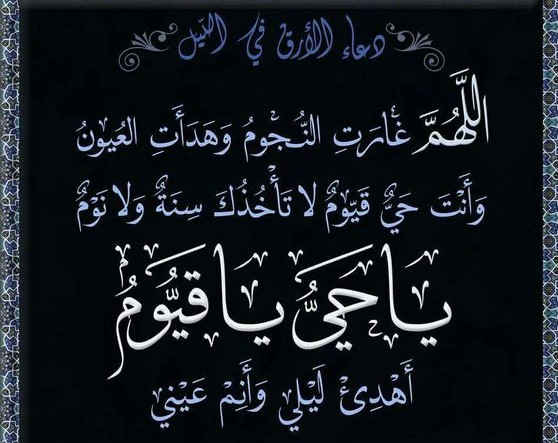 دعاء الأرق في الليل
اللَّهُمَّ غَارَتِ النُّجومُ وَهَدَأَتِ العُيونُ
وَأَنْتَ حَيٌّ قَيّومٌ لا تَأْخُذُكَ سِنَةٌ وَلا نَوْمٌ
يا حَيُّ يا قَيُّومُ
أَهْدِئْ لَيْلِي وَأَنِمْ عَيْنِي